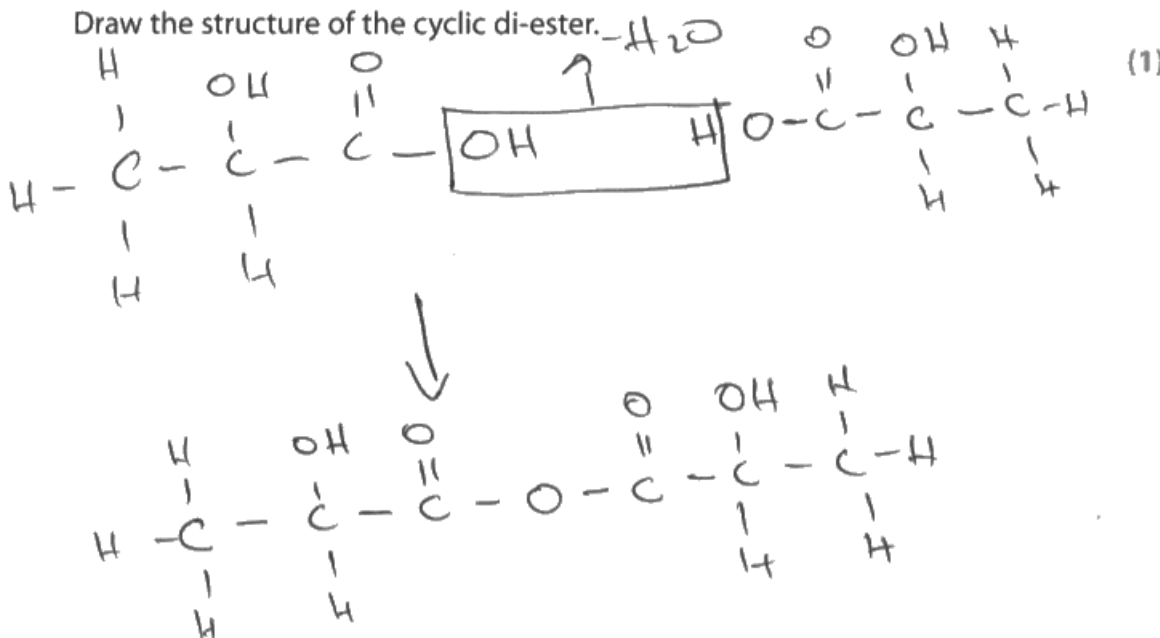 Draw the structure of the cyclic di-ester. -H2O
(1)
H OH O O OH H
H - C - C - C - OH H O - C - C - C - H
H H H H
H OH O O OH H
H - C - C - C - O - C - C - C - H
H H H H